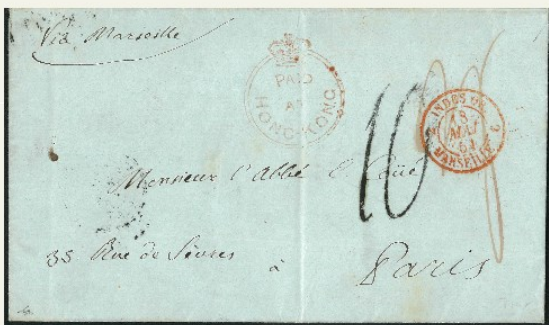 Via Marseille
PAID
AT
HONG-KONG
18
MAI
MARSEILLE
10
Monsieur l'Abbé
35 Rue de Sèvres
à
Paris